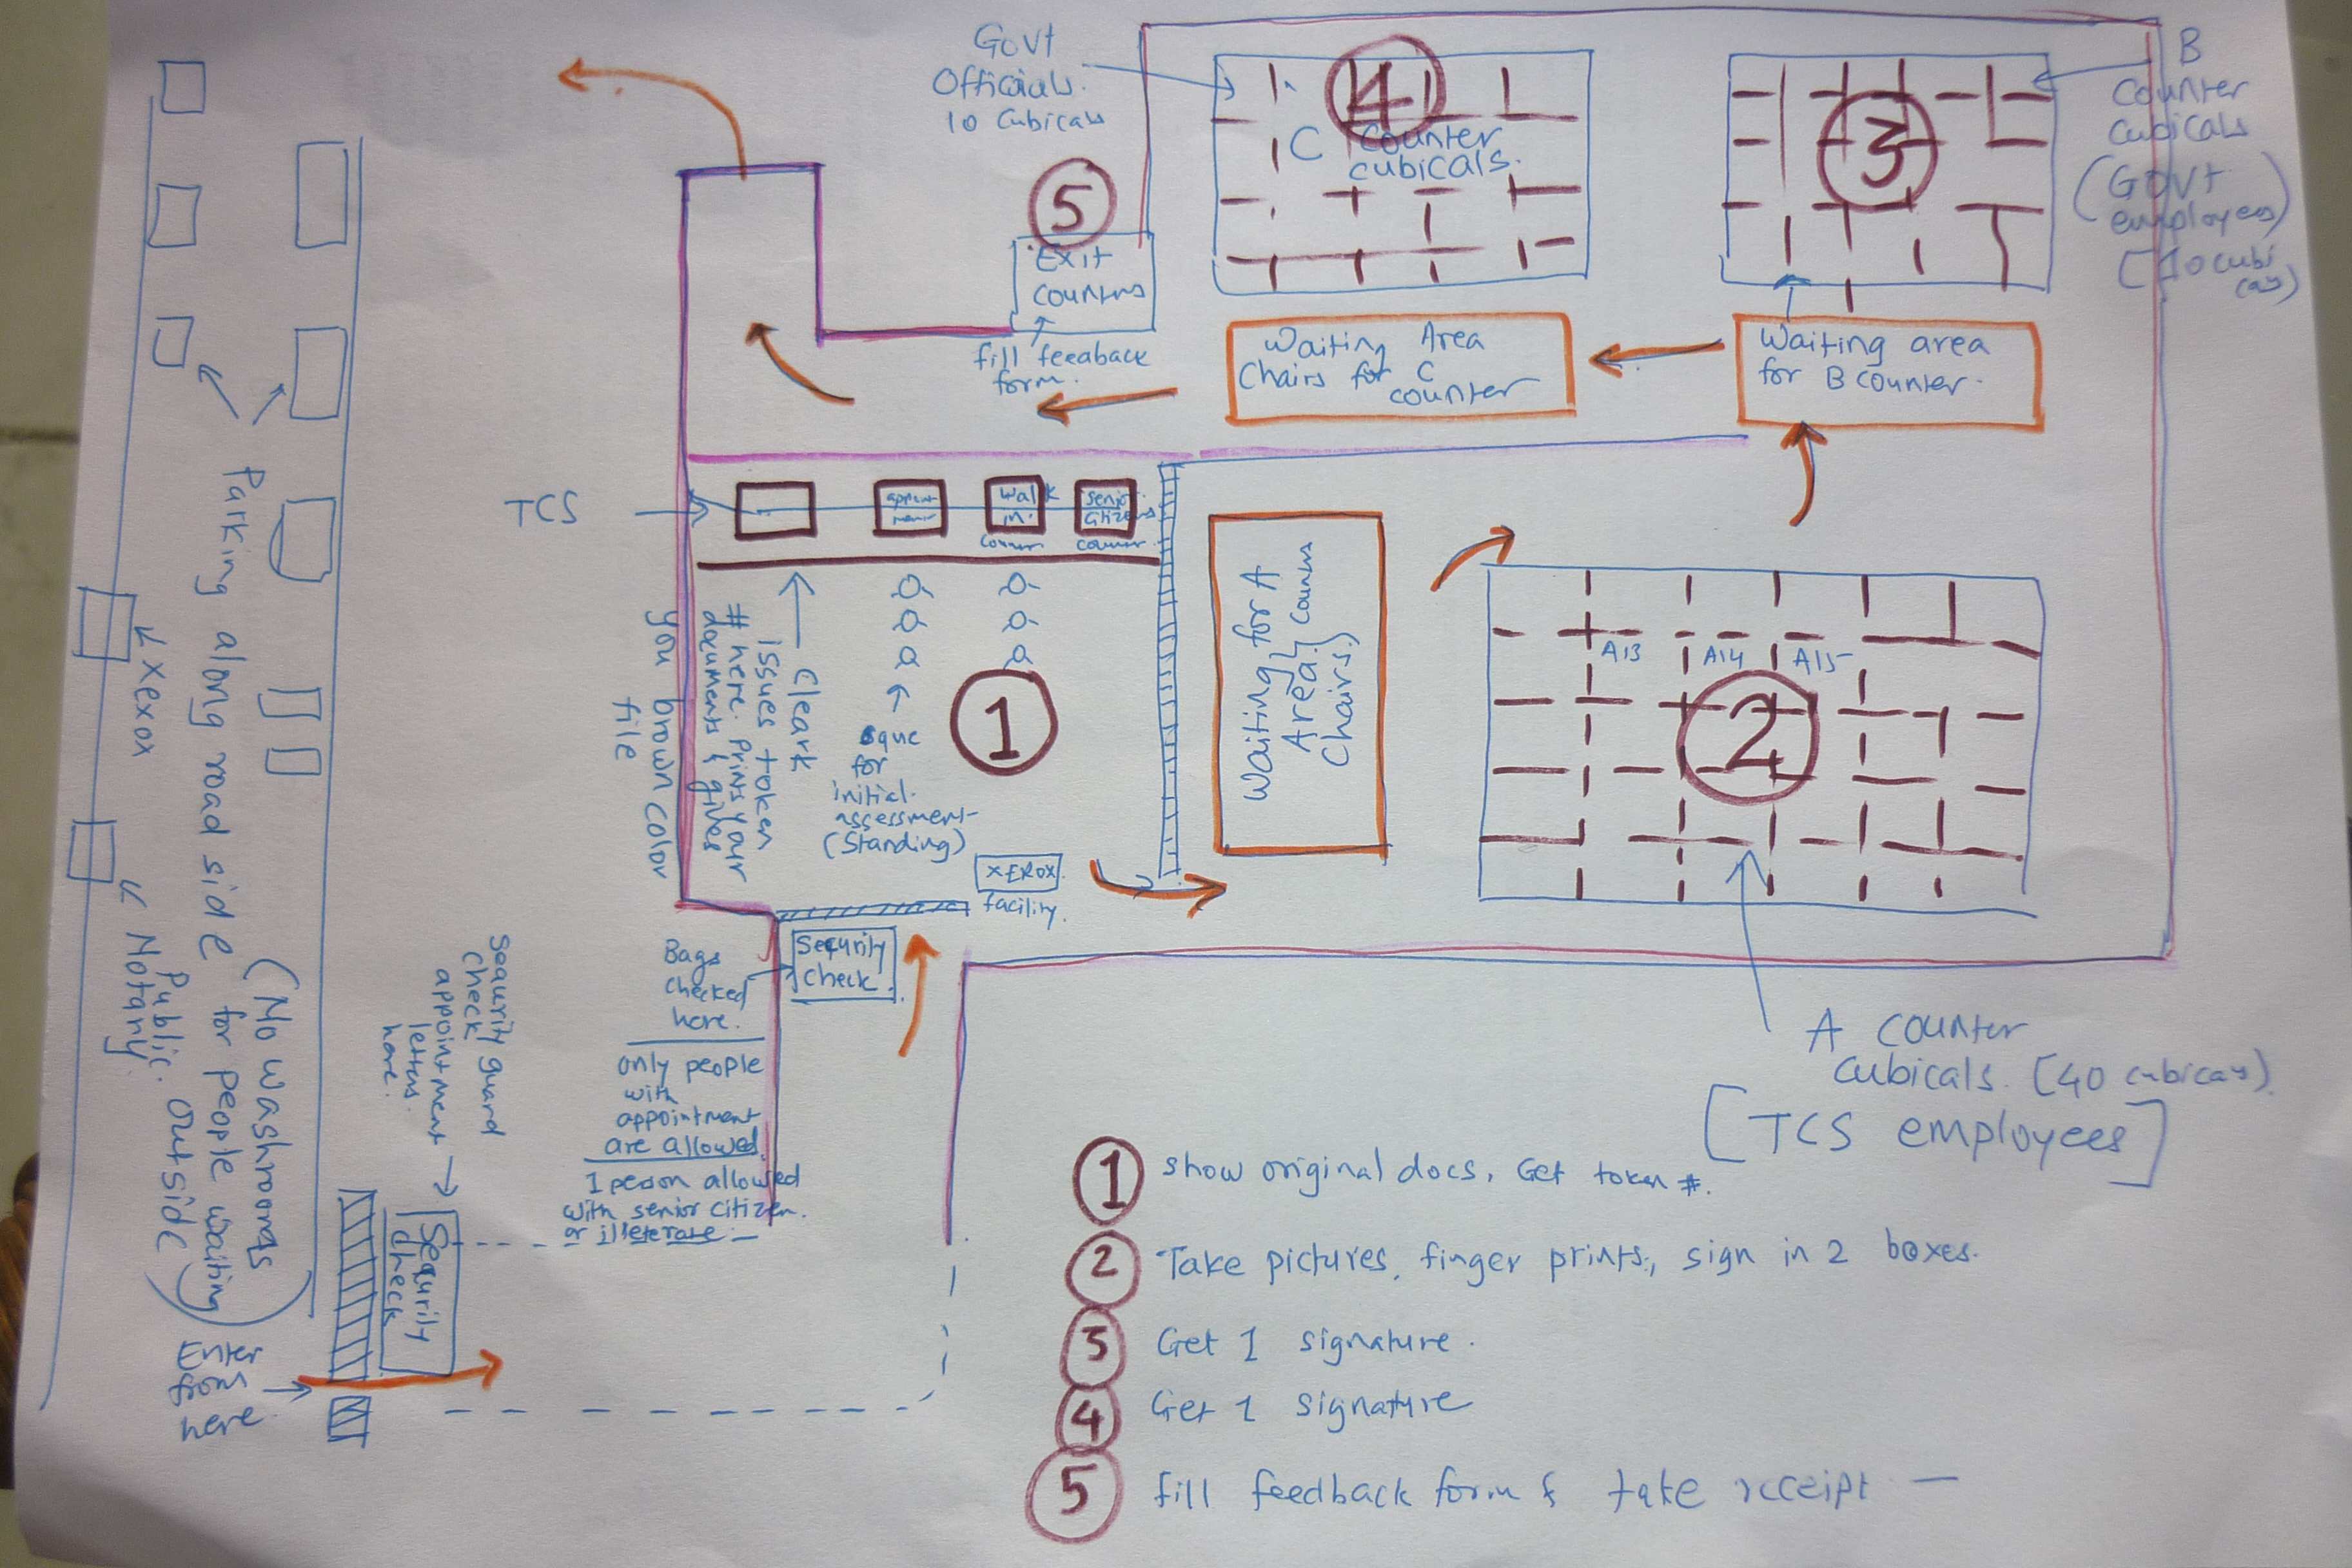 Govt
Officials.
10 Cubicals
4
C Counter
cubicals.
3
B
Counter
Cubicals
(Govt
employees)
5
Exit
counters
fill feedback
form.
Waiting Area
Chairs for C
counter
Waiting area
for B counter.
TCS
Walk
in.
counter
Senior
Citizens
counter
Cleark
issues token
# here. Prints your
documents & gives
you brown color
file
1
for
initial
assessment
(Standing)
XEROX
facility.
Waiting for A
Area. Counters
(Chairs)
A13 A14 A15
2
A counter
cubicals. [40 cubicals]
[TCS employees]
Parking along road side
(No washrooms
for people waiting
outside)
xexox
Notary
Public.
Sequrity guard
check
appointment
letters
here.
Sequrity
check
Enter
from
here
Bags
checked
here.
Sequrity
check.
only people
with
appointment
are allowed
1 person allowed
with senior citizen.
or illeterate
1 show original docs. Get token #.
2 Take pictures, finger prints, sign in 2 boxes.
3 Get 1 signature.
4 Get 1 signature
5 fill feedback form & take receipt